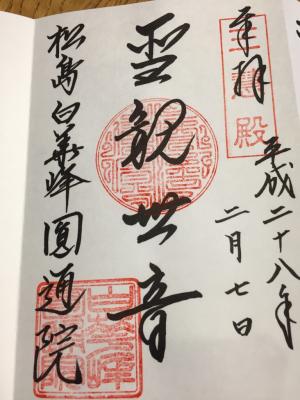 奉拝
三慧殿
平成二十八年
二月七日
聖観世音
松島白華峰圓通院